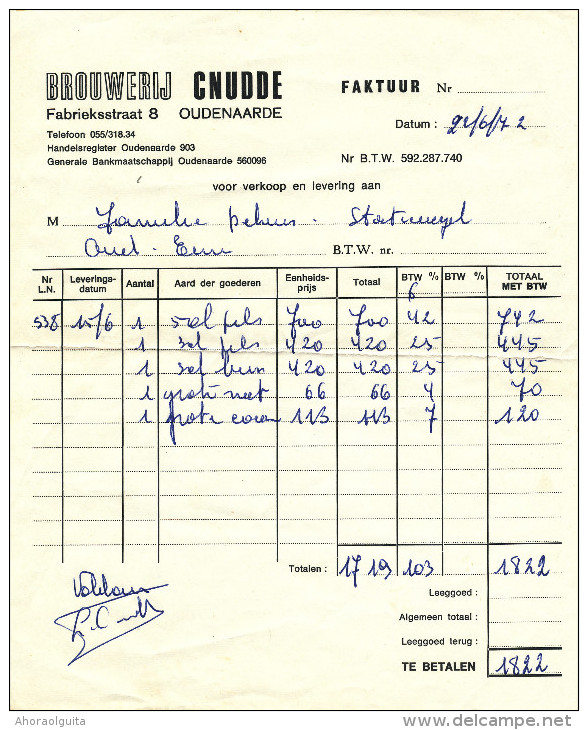 BROUWERIJ CNUDDE
Fabrieksstraat 8 OUDENAARDE
Telefoon 055/318.34
Handelsregister Oudenaarde 903
Generale Bankmaatschappij Oudenaarde 560096
FAKTUUR Nr
Datum : 22/6/72
Nr B.T.W. 592.287.740
voor verkoop en levering aan
M familie
Oud
B.T.W. nr.
Nr L.N. Leverings-datum Aantal Aard der goederen Eenheids-prijs Totaal BTW % 6 BTW % TOTAAL MET BTW
538 15/6 1 50l pils 700 700 42 742
1 pils 420 420 25 445
1 420 420 25 445
1 grote 66 66 4 70
1 grote 113 113 7 120
Totalen : 1719 103 1822
Leeggoed :
Algemeen totaal :
Leeggoed terug :
TE BETALEN 1822
Voldaan
Ahoraolguita
delcampe.net